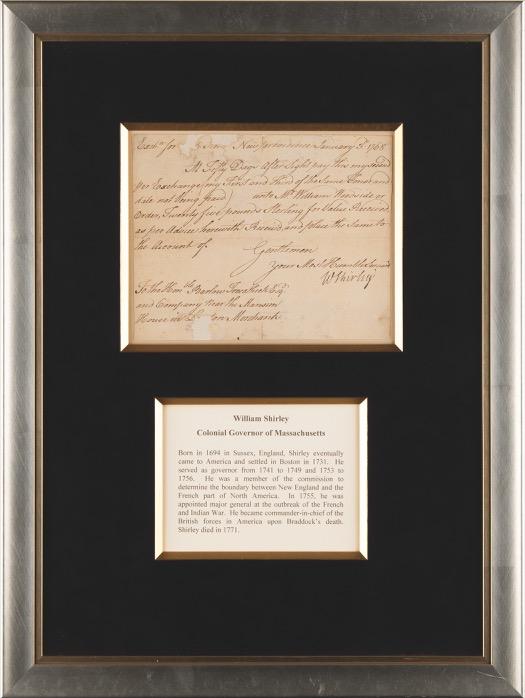 Exch.a for Newprovidence January 5th 1768
At Fifty Days after Sight pay this my Second
per Exchange, my First and third of the Same Tenor and
date not being paid) unto Mr. William Woodside or
Order, Twenty five pounds Sterling for Value Received
as per Advice herewith Receivd, and place the Same to
the Account of
Gentlemen
Your Most Humble Servant
WShirley
To the Honble Barlow Trecothick Esqr
and Company Near the Mansion
House in on Merchants
William Shirley
Colonial Governor of Massachusetts
Born in 1694 in Sussex, England, Shirley eventually
came to America and settled in Boston in 1731. He
served as governor from 1741 to 1749 and 1753 to
1756. He was a member of the commission to
determine the boundary between New England and the
French part of North America. In 1755, he was
appointed major general at the outbreak of the French
and Indian War. He became commander-in-chief of the
British forces in America upon Braddock's death.
Shirley died in 1771.